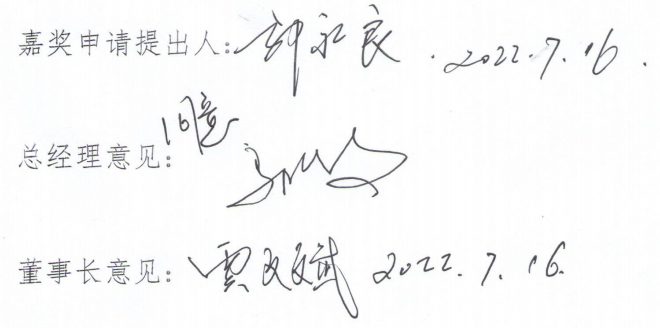 嘉奖申请提出人：钟永良.2022.7.16.
总经理意见：同意
董事长意见：2022.7.16.